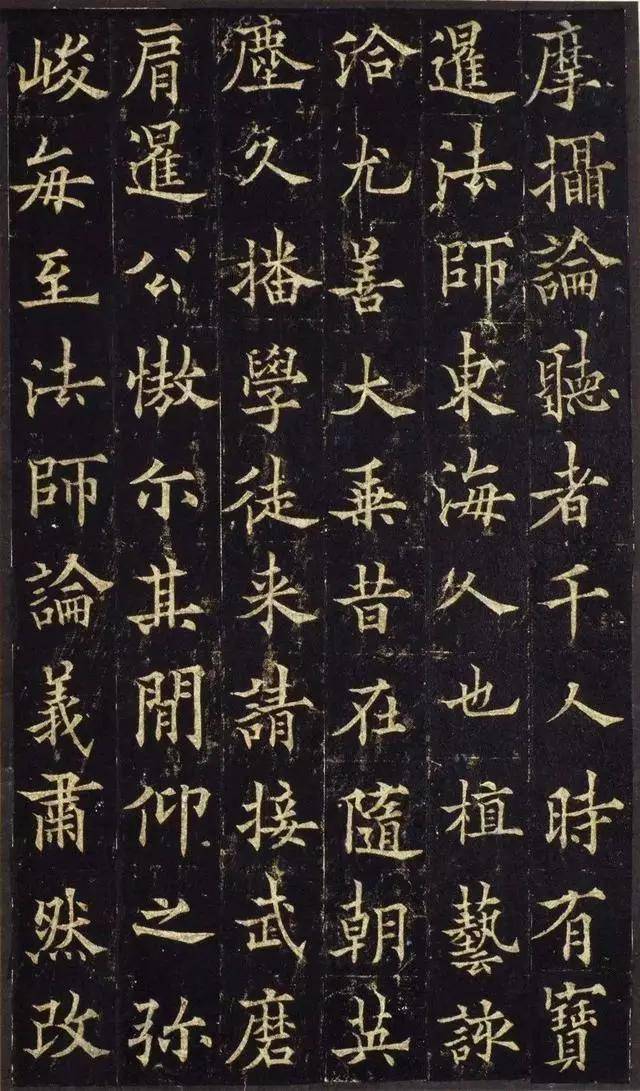 摩攝論聽者千人時有寶
暹法師東海人也植藝詠
洽尤善大乗昔在隨朝英
塵久播學徒来請接武磨
肩暹公傲尓其間仰之弥
峻每至法師論義肅然改